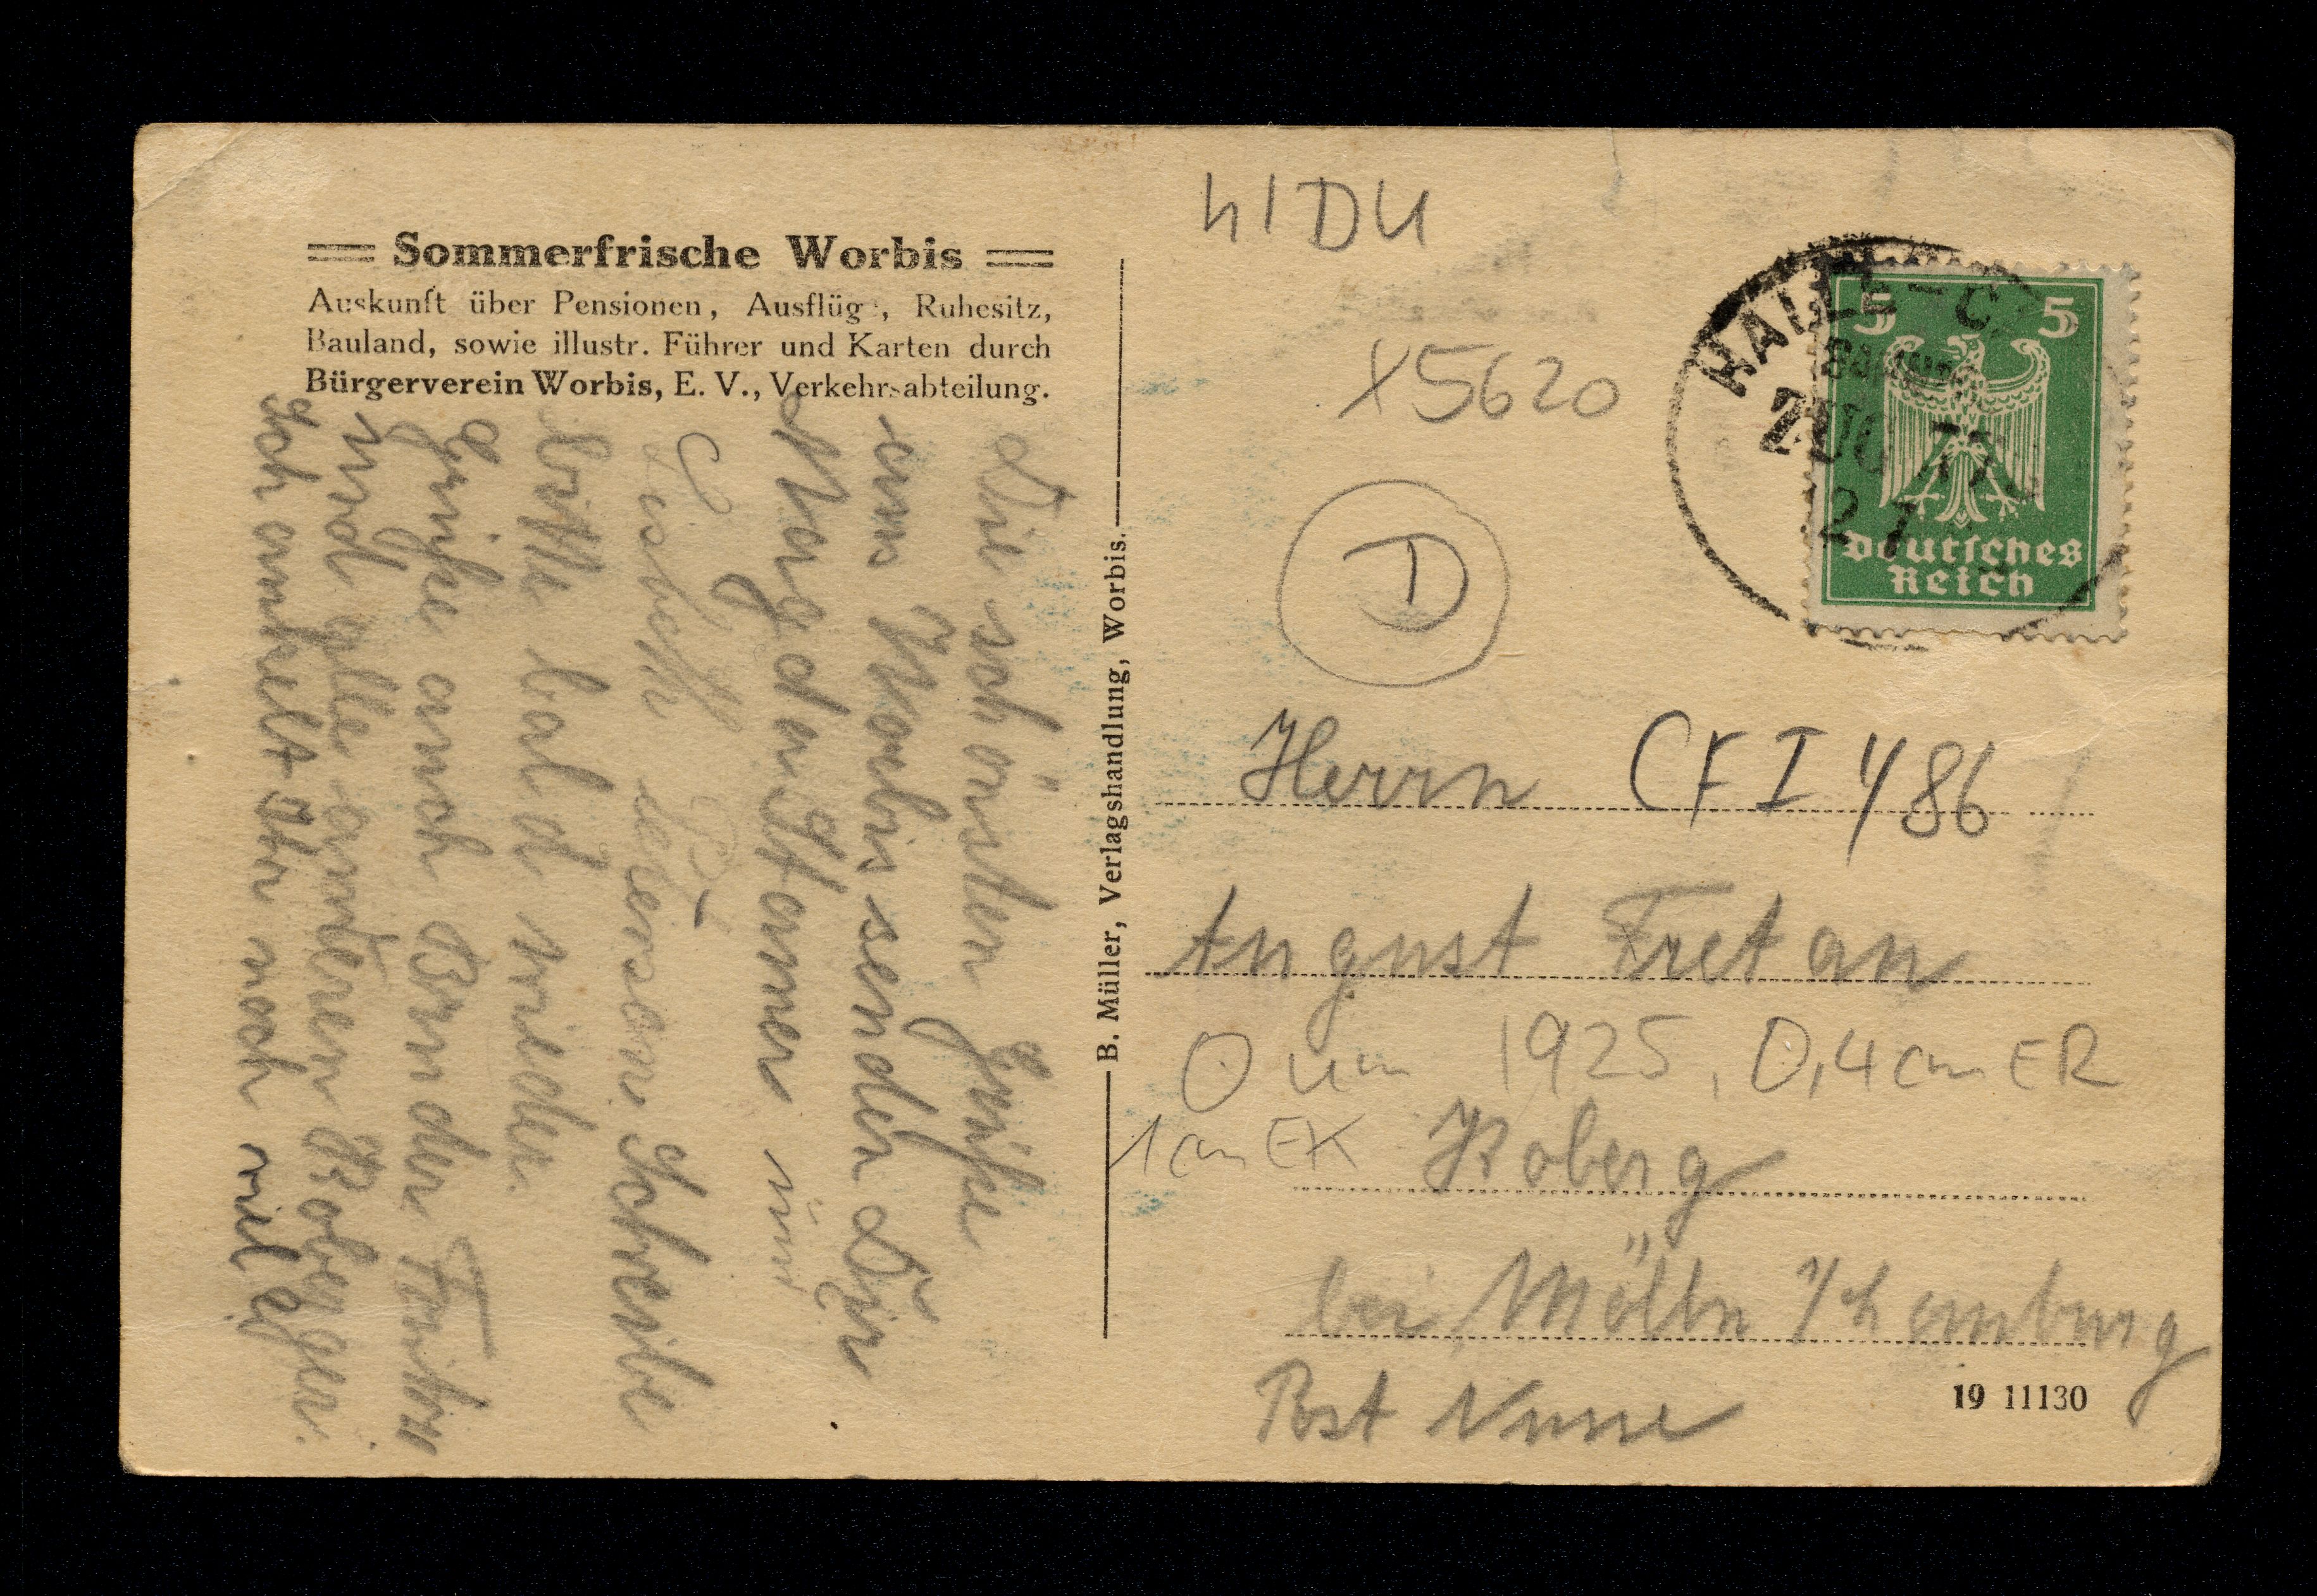 Sommerfrische Worbis
Auskunft über Pensionen, Ausflüge, Ruhesitz,
Bauland, sowie illustr. Führer und Karten durch
Bürgerverein Worbis, E. V., Verkehrsabteilung.
Die schönsten Grüße
aus Worbis senden Dir
Magda und
Lisbeth Schreibe
bitte bald wieder.
Grüße auch Bruder
und alle anderen Koberger.
Ich noch viel
B. Müller, Verlagshandlung, Worbis.
h1DU
X5620
D
HALLE-C
BAHNPOST
ZUG
5 5
Deutsches
Reich
Herrn CF I 1/86
August
O um 1925, 0,4 cm ER
1 cm EK Koberg
bei Mölln
19 11130
Post Nusse